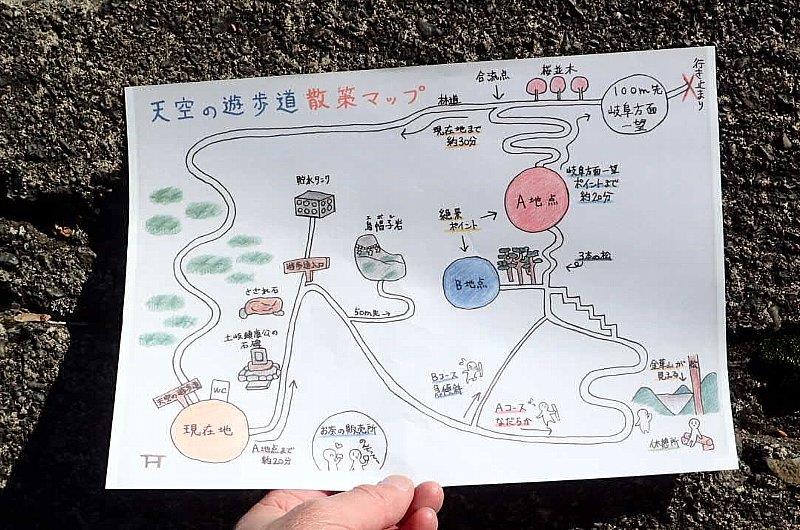 天空の遊歩道 散策マップ
合流点
桜並木
林道
現在地まで
約30分
100m先
岐阜方面
一望
行き止まり
A地点
岐阜方面一望
ポイントまで
約20分
貯水タンク
えぼし
烏帽子岩
絶景
ポイント
B地点
3本の松
遊歩道入口
さざれ石
50m先
土岐頼康公の
石碑
天空の遊歩道
WC
現在地
A地点まで
約20分
お茶の販売所
Bコース
急傾斜
Aコース
なだらか
金華山が
見える
休憩所